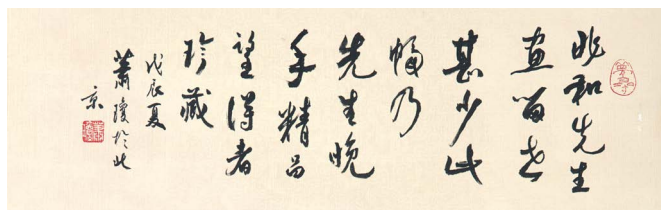 兆和先生
画留世
甚少此
幅乃
先生晚
年精品
望得者
珍藏
戊辰夏
萧琼於北
京